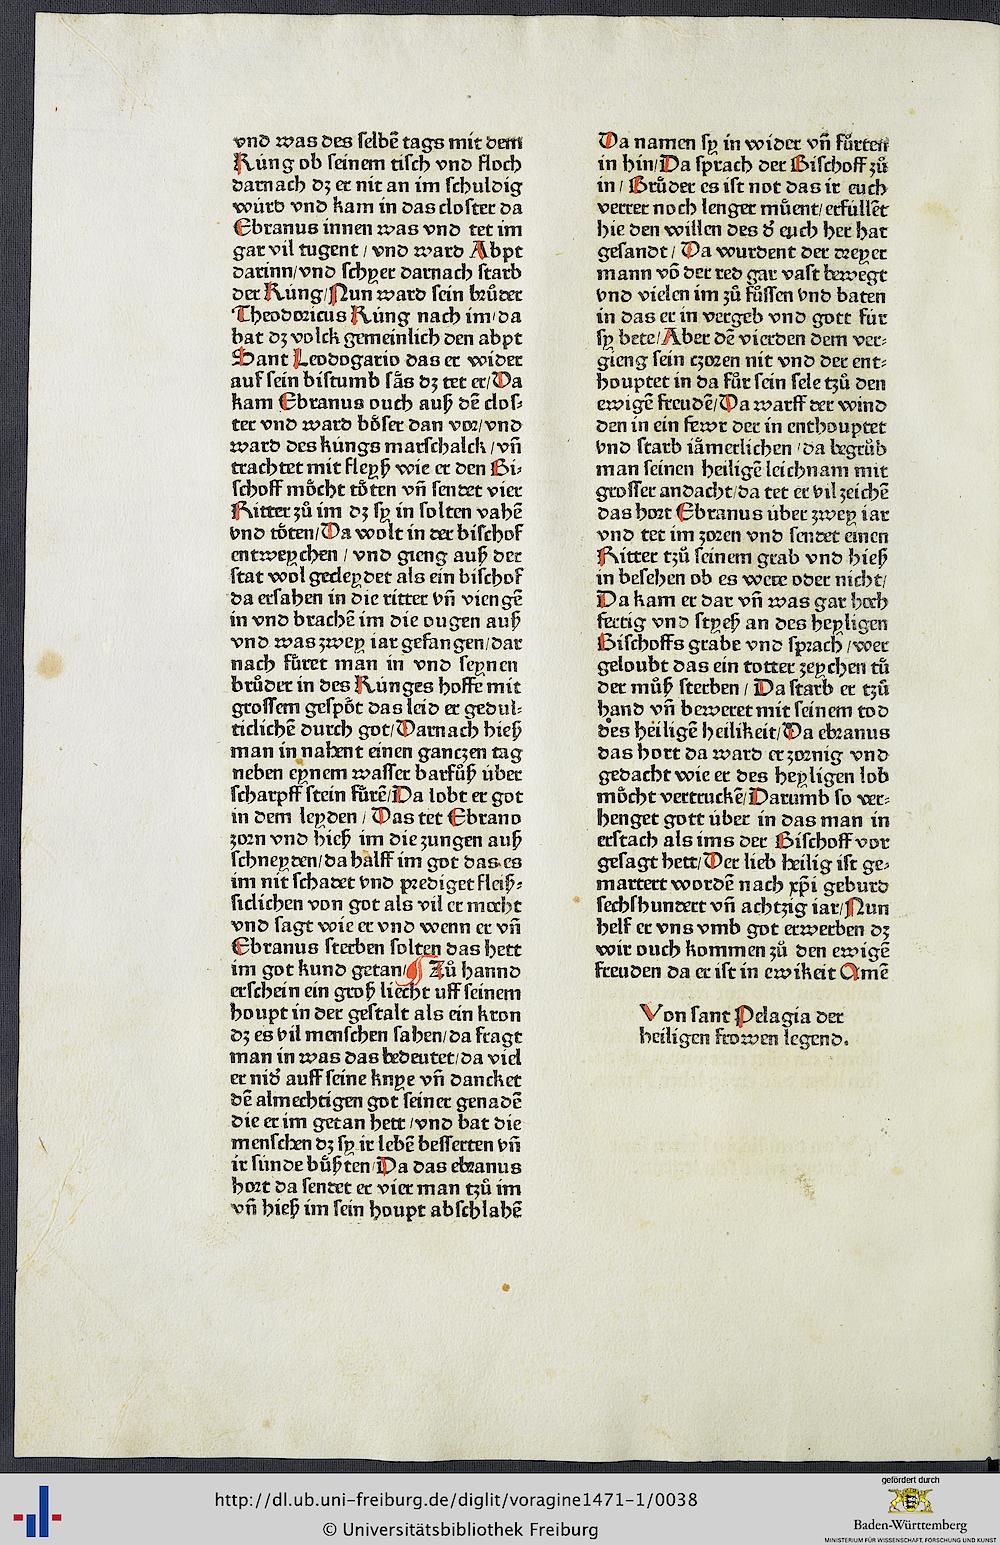 vnd was des ſelbē tags mit dem
Küng ob ſeinem tiſch vnd floch
darnach dʒ er nit an im ſchuldig
würd vnd kam in das cloſter da
Ebranus innen was vnd tet im
gar vil tugent / vnd ward Abpt
darinn/vnd ſchyer darnach ſtarb
der Küng/Nun ward ſein brůder
Theodoricus Küng nach im/da
bat dʒ volck gemeinlich den abpt
Sant Leodogario das er wider
auf ſein biſtumb ſäs dʒ tet er/Da
kam Ebranus ouch auß dē cloſ⸗
ter vnd ward böſer dan vor/vnd
ward des küngs marſchalck /vn̄
trachtet mit fleyß wie er den Bi⸗
ſchoff möcht töten vn̄ ſendet vier
Ritter zů im dʒ ſy in ſolten vahē
vnd töten/Da wolt in der biſchof
entweychen / vnd gieng auß der
ſtat wol gecleydet als ein biſchof
da erſahen in die ritter vn̄ viengē
in vnd brachē im die ougen auß
vnd was zwey iar gefangen/dar
nach fůret man in vnd ſeynen
brůder in des Künges hoffe mit
groſſem geſpöt das leid er gedul⸗
ticlichē durch got/Darnach hieß
man in nakent einen ganczen tag
neben eynem waſſer barfůß über
ſcharpff ſtein fůrē/Da lobt er got
in dem leyden / Das tet Ebrano
zorn vnd hieß im die zungen auß
ſchneyden/da halff im got das es
im nit ſchadet vnd prediget fleiſ⸗
ſiclichen von got als vil er mocht
vnd ſagt wie er vnd wenn er vn̄
Ebranus ſterben ſolten das hett
im got kund getan/ Zů hannd
erſchein ein groß liecht uff ſeinem
houpt in der geſtalt als ein kron
dʒ es vil menſchen ſahen/da fragt
man in was das bedeutet/da viel
er nid᷑ auff ſeine knye vn̄ dancket
dē almechtigen got ſeiner genadē
die er im getan hett /vnd bat die
menſchen dʒ ſy ir lebē beſſerten vn̄
ir ſünde bůßten/Da das ebranus
hort da ſendet er vier man tzů im
vn̄ hieß im ſein houpt abſchlahē
Da namen ſy in wider vn̄ fůrten
in hin/Da ſprach der Biſchoff zů
in / Brůder es iſt not das ir euch
verrer noch lenger můent/erfüllēt
hie den willen des d᷑ euch her hat
geſandt/ Da wurdent der dreyer
mann vō der red gar vaſt bewegt
vnd vielen im zů fůſſen vnd baten
in das er in vergeb vnd gott für
ſy bete/Aber dē vierden dem ver⸗
gieng ſein czoren nit vnd der ent⸗
houptet in da für ſein ſele tzů den
ewigē freudē/Da warff der wind
den in ein fewr der in enthouptet
vnd ſtarb iämerlichen /da begrůb
man ſeinen heiligē leichnam mit
groſſer andacht/da tet er vil zeichē
das hort Ebranus über zwey iar
vnd tet im zoren vnd ſendet einen
Ritter tzů ſeinem grab vnd hieß
in beſehen ob es were oder nicht/
Da kam er dar vn̄ was gar hoch
fertig vnd ſtyeß an des heyligen
Biſchoffs grabe vnd ſprach /wer
geloubt das ein totter zeychen tů
der můß ſterben / Da ſtarb er tzů
hand vn̄ beweret mit ſeinem tod
des heiligē heilikeit/Da ebranus
das hort da ward er zornig vnd
gedacht wie er des heyligen lob
möcht vertruckē/Darumb ſo ver⸗
henget gott über in das man in
erſtach als ims der Biſchoff vor
geſagt hett/Der lieb heilig iſt ge⸗
martert wordē nach xp̄i geburd
ſechſhundert vn̄ achtzig iar/Nun
helf er vns vmb got erwerben dʒ
wir ouch kommen zů den ewigē
freuden da er iſt in ewikeit Amē
Von ſant Pelagia der
heiligen frowen legend.
http://dl.ub.uni-freiburg.de/diglit/voragine1471-1/0038
© Universitätsbibliothek Freiburg
gefördert durch
Baden-Württemberg
MINISTERIUM FÜR WISSENSCHAFT, FORSCHUNG UND KUNST